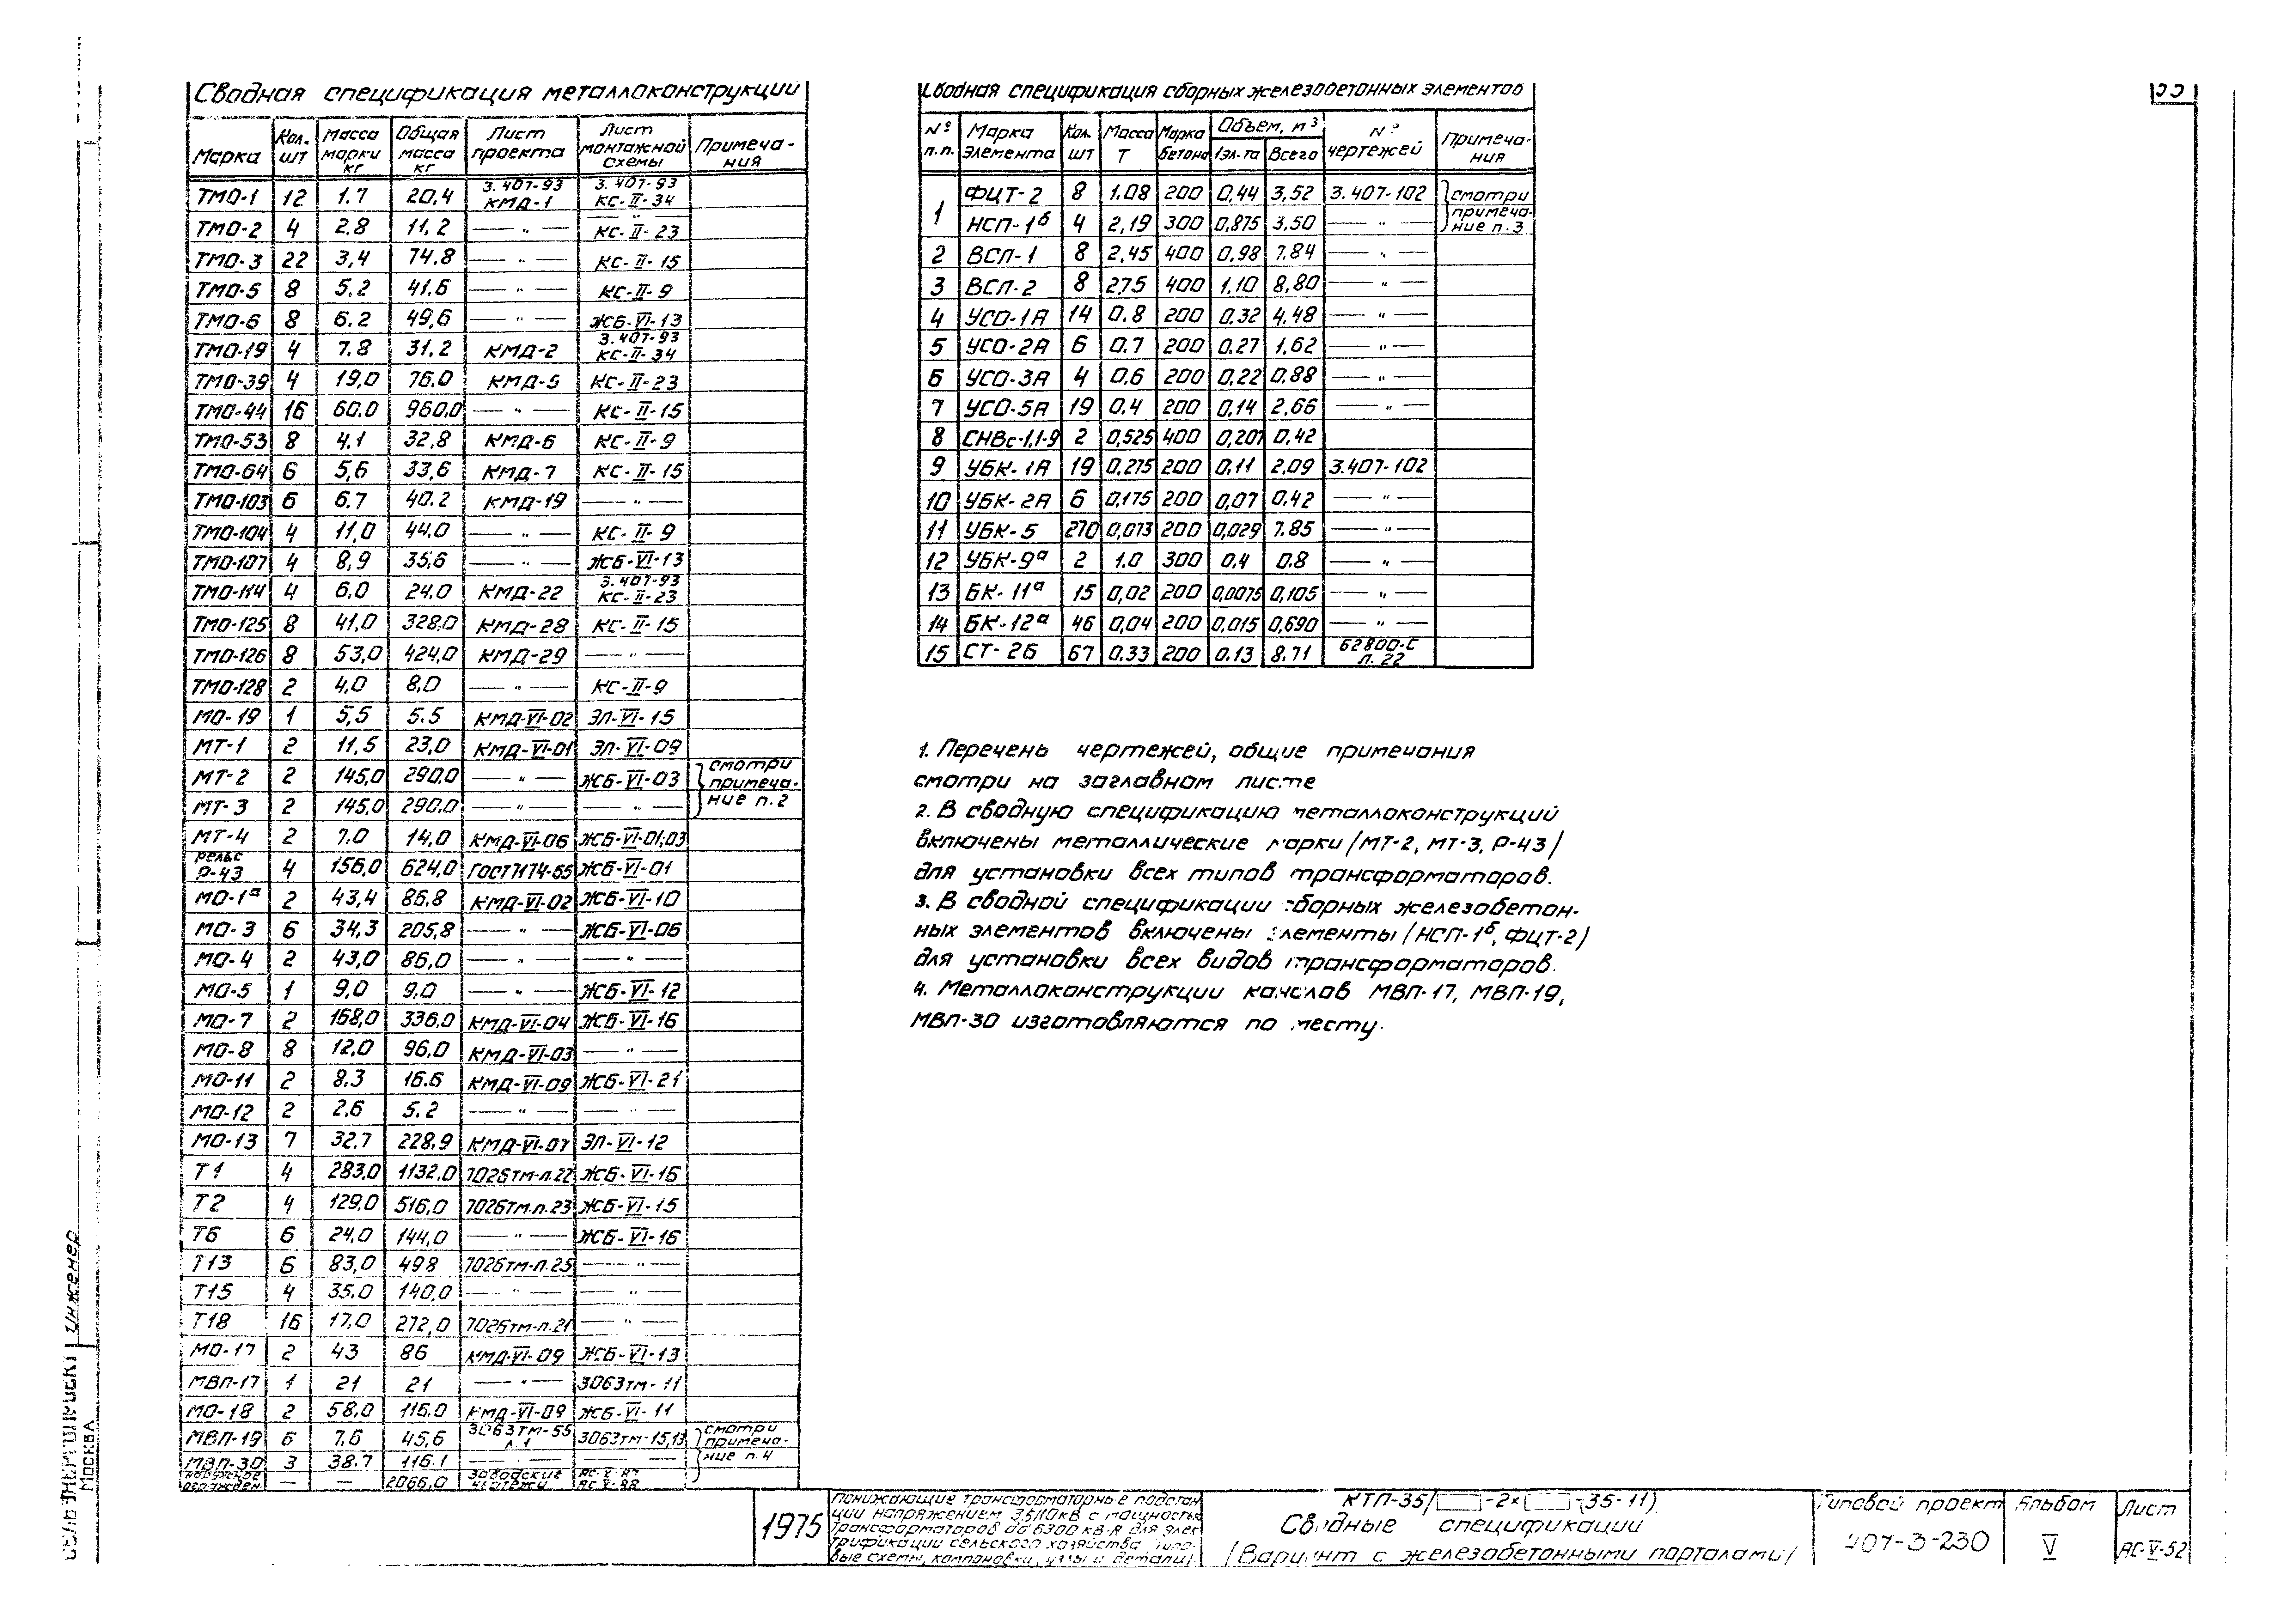 Сводная спецификация металлоконструкций
Марка Кол. шт Масса марки кг Общая масса кг Лист проекта Лист монтажной схемы Примечания
ТМО-1 12 1.7 20,4 3.407-93 КМД-1 3.407-93 КС-II-34
ТМО-2 4 2.8 11.2 —"— —"— КС-II-23
ТМО-3 22 3,4 74.8 —"— КС-II-15
ТМО-5 8 5.2 41.6 —"— КС-II-9
ТМО-6 8 6.2 49,6 —"— ЖСБ-VI-13
ТМО-19 4 7.8 31.2 КМД-2 3.407-93 КС-II-34
ТМО-39 4 19,0 76.0 КМД-5 КС-II-23
ТМО-44 16 60.0 960,0 —"— КС-II-15
ТМО-53 8 4.1 32.8 КМД-6 КС-II-9
ТМО-64 6 5,6 33,6 КМД-7 КС-II-15
ТМО-103 6 6.7 40.2 КМД-19 —"—
ТМО-104 4 11,0 44,0 —"— КС-II-9
ТМО-107 4 8,9 35,6 —"— ЖСБ-VI-13
ТМО-114 4 6,0 24.0 КМД-22 3.407-93 КС-II-23
ТМО-125 8 41,0 328,0 КМД-28 КС-II-15
ТМО-126 8 53,0 424,0 КМД-29 —"—
ТМО-128 2 4,0 8,0 —"— КС-II-9
МО-19 1 5,5 5.5 КМД-VI-02 ЭЛ-VI-15
МТ-1 2 11,5 23,0 КМД-VI-01 ЭЛ-VI-09
МТ-2 2 145,0 290,0 —"— ЖСБ-VI-03 смотри примеча-
МТ-3 2 145,0 290,0 —"— —"— ние п.2
МТ-4 2 7.0 14,0 КМД-VI-06 ЖСБ-VI-01;03
рельс Р-43 4 156,0 624,0 ГОСТ7174-65 ЖСБ-VI-01
МО-1а 2 43,4 86.8 КМД-VI-02 ЖСБ-VI-10
МО-3 6 34,3 205,8 —"— ЖСБ-VI-06
МО-4 2 43,0 86,0 —"— —"—
МО-5 1 9,0 9,0 —"— ЖСБ-VI-12
МО-7 2 168,0 336,0 КМД-VI-04 ЖСБ-VI-16
МО-8 8 12,0 96,0 КМД-VI-03 —"—
МО-11 2 8.3 16.6 КМД-VI-09 ЖСБ-VI-21
МО-12 2 2,6 5.2 —"— —"—
МО-13 7 32.7 228.9 КМД-VI-07 ЭЛ-VI-12
Т1 4 283,0 1132,0 7026тм-л.22 ЖСБ-VI-16
Т2 4 129,0 516,0 7026тм.л.23 ЖСБ-VI-15
Т6 6 24,0 144,0 —"— ЖСБ-VI-16
Т13 6 83,0 498 7026тм-л.25 —"—
Т15 4 35.0 140,0 —"— —"—
Т18 16 17,0 272,0 7026тм-л.21 —"—
МО-17 2 43 86 КМД-VI-09 ЖСБ-VI-13
МВП-17 1 21 21 —"— 3063тм-11
МО-18 2 58.0 116.0 КМД-VI-09 ЖСБ-VI-11
МВП-19 6 7.6 45,6 3063тм-55 л.1 3063тм-15,13 смотри примеча-
МВП-30 3 38.7 116.1 —"— —"— ние п.4
наружное огражден. — — 2066,0 Заводские чертежи
Сводная спецификация сборных железобетонных элементов
№ п.п. Марка элемента Кол. шт Масса Т Марка бетона Объем, м3 1эл-та Всего № чертежей Примечания
1 ФЦТ-2 8 1.08 200 0,44 3,52 3.407-102 смотри
НСП-1б 4 2,19 300 0,875 3.50 —"— примечание п.3
2 ВСЛ-1 8 2,45 400 0,98 7.84 —"—
3 ВСЛ-2 8 2.75 400 1.10 8,80 —"—
4 УСО-1А 14 0.8 200 0.32 4.48 —"—
5 УСО-2А 6 0.7 200 0.27 1,62 —"—
6 УСО-3А 4 0,6 200 0,22 0,88 —"—
7 УСО-5А 19 0.4 200 0,14 2,66 —"—
8 СНВс-1,1-9 2 0,525 400 0,207 0.42
9 УБК-1А 19 0,275 200 0,11 2.09 3.407-102
10 УБК-2А 6 0,175 200 0,07 0,42 —"—
11 УБК-5 270 0,073 200 0,029 7.85 —"—
12 УБК-9а 2 1.0 300 0.4 0.8 —"—
13 БК-11а 15 0,02 200 0,0075 0,105 —"—
14 БК-12а 46 0,04 200 0,015 0,690 —"—
15 СТ-2Б 67 0.33 200 0.13 8.71 62800-С л.22
1. Перечень чертежей, общие примечания
смотри на заглавном листе
2. В сводную спецификацию металлоконструкций
включены металлические марки /МТ-2, МТ-3, Р-43/
для установки всех типов трансформаторов.
3. В сводной спецификации сборных железобетон-
ных элементов включены элементы /НСП-1б, ФЦТ-2/
для установки всех видов трансформаторов.
4. Металлоконструкции каналов МВП-17, МВП-19,
МВП-30 изготовляются по месту.
инженер
Москва
1975
Понижающие трансформаторные подстан
ции напряжением 35/10кв с мощностью
трансформаторов до 6300 кв·А для элек
трификации сельского хозяйства /типо-
вые схемы, компоновки, узлы и детали/.
КТП-35/ -2× (35-11).
Сводные спецификации
/Вариант с железобетонными порталами/
Типовой проект
407-3-230
Альбом
V
Лист
АС-V-52